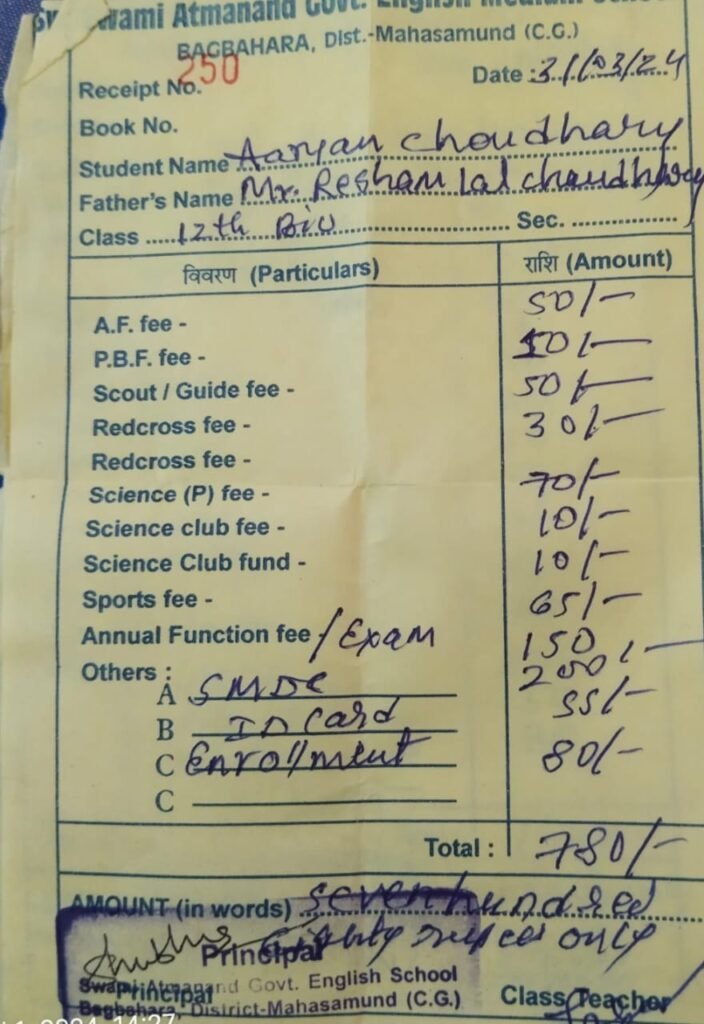 Swami Atmanand Govt. English Medium
BAGBAHARA, Dist.-Mahasamund (C.G.)
Receipt No. 250 Date : 31/03/24
Book No.
Student Name Aaryan Choudhary
Father's Name Mr. Resham Lal Chaudhary
Class 12th Bio Sec.
विवरण (Particulars) राशि (Amount)
A.F. fee - 50/-
P.B.F. fee - 10/-
Scout / Guide fee - 50/-
Redcross fee - 30/-
Redcross fee -
Science (P) fee - 70/-
Science club fee - 10/-
Science Club fund - 10/-
Sports fee - 65/-
Annual Function fee / Exam 150
Others : 200/-
A SMDC 55/-
B ID Card
C Enrollment 80/-
C
Total : 780/-
AMOUNT (in words) Seven hundred
Eighty rupees only
Principal
Swami Atmanand Govt. English School
Principal Class Teacher
Bagbahara, District-Mahasamund (C.G.)
14:27